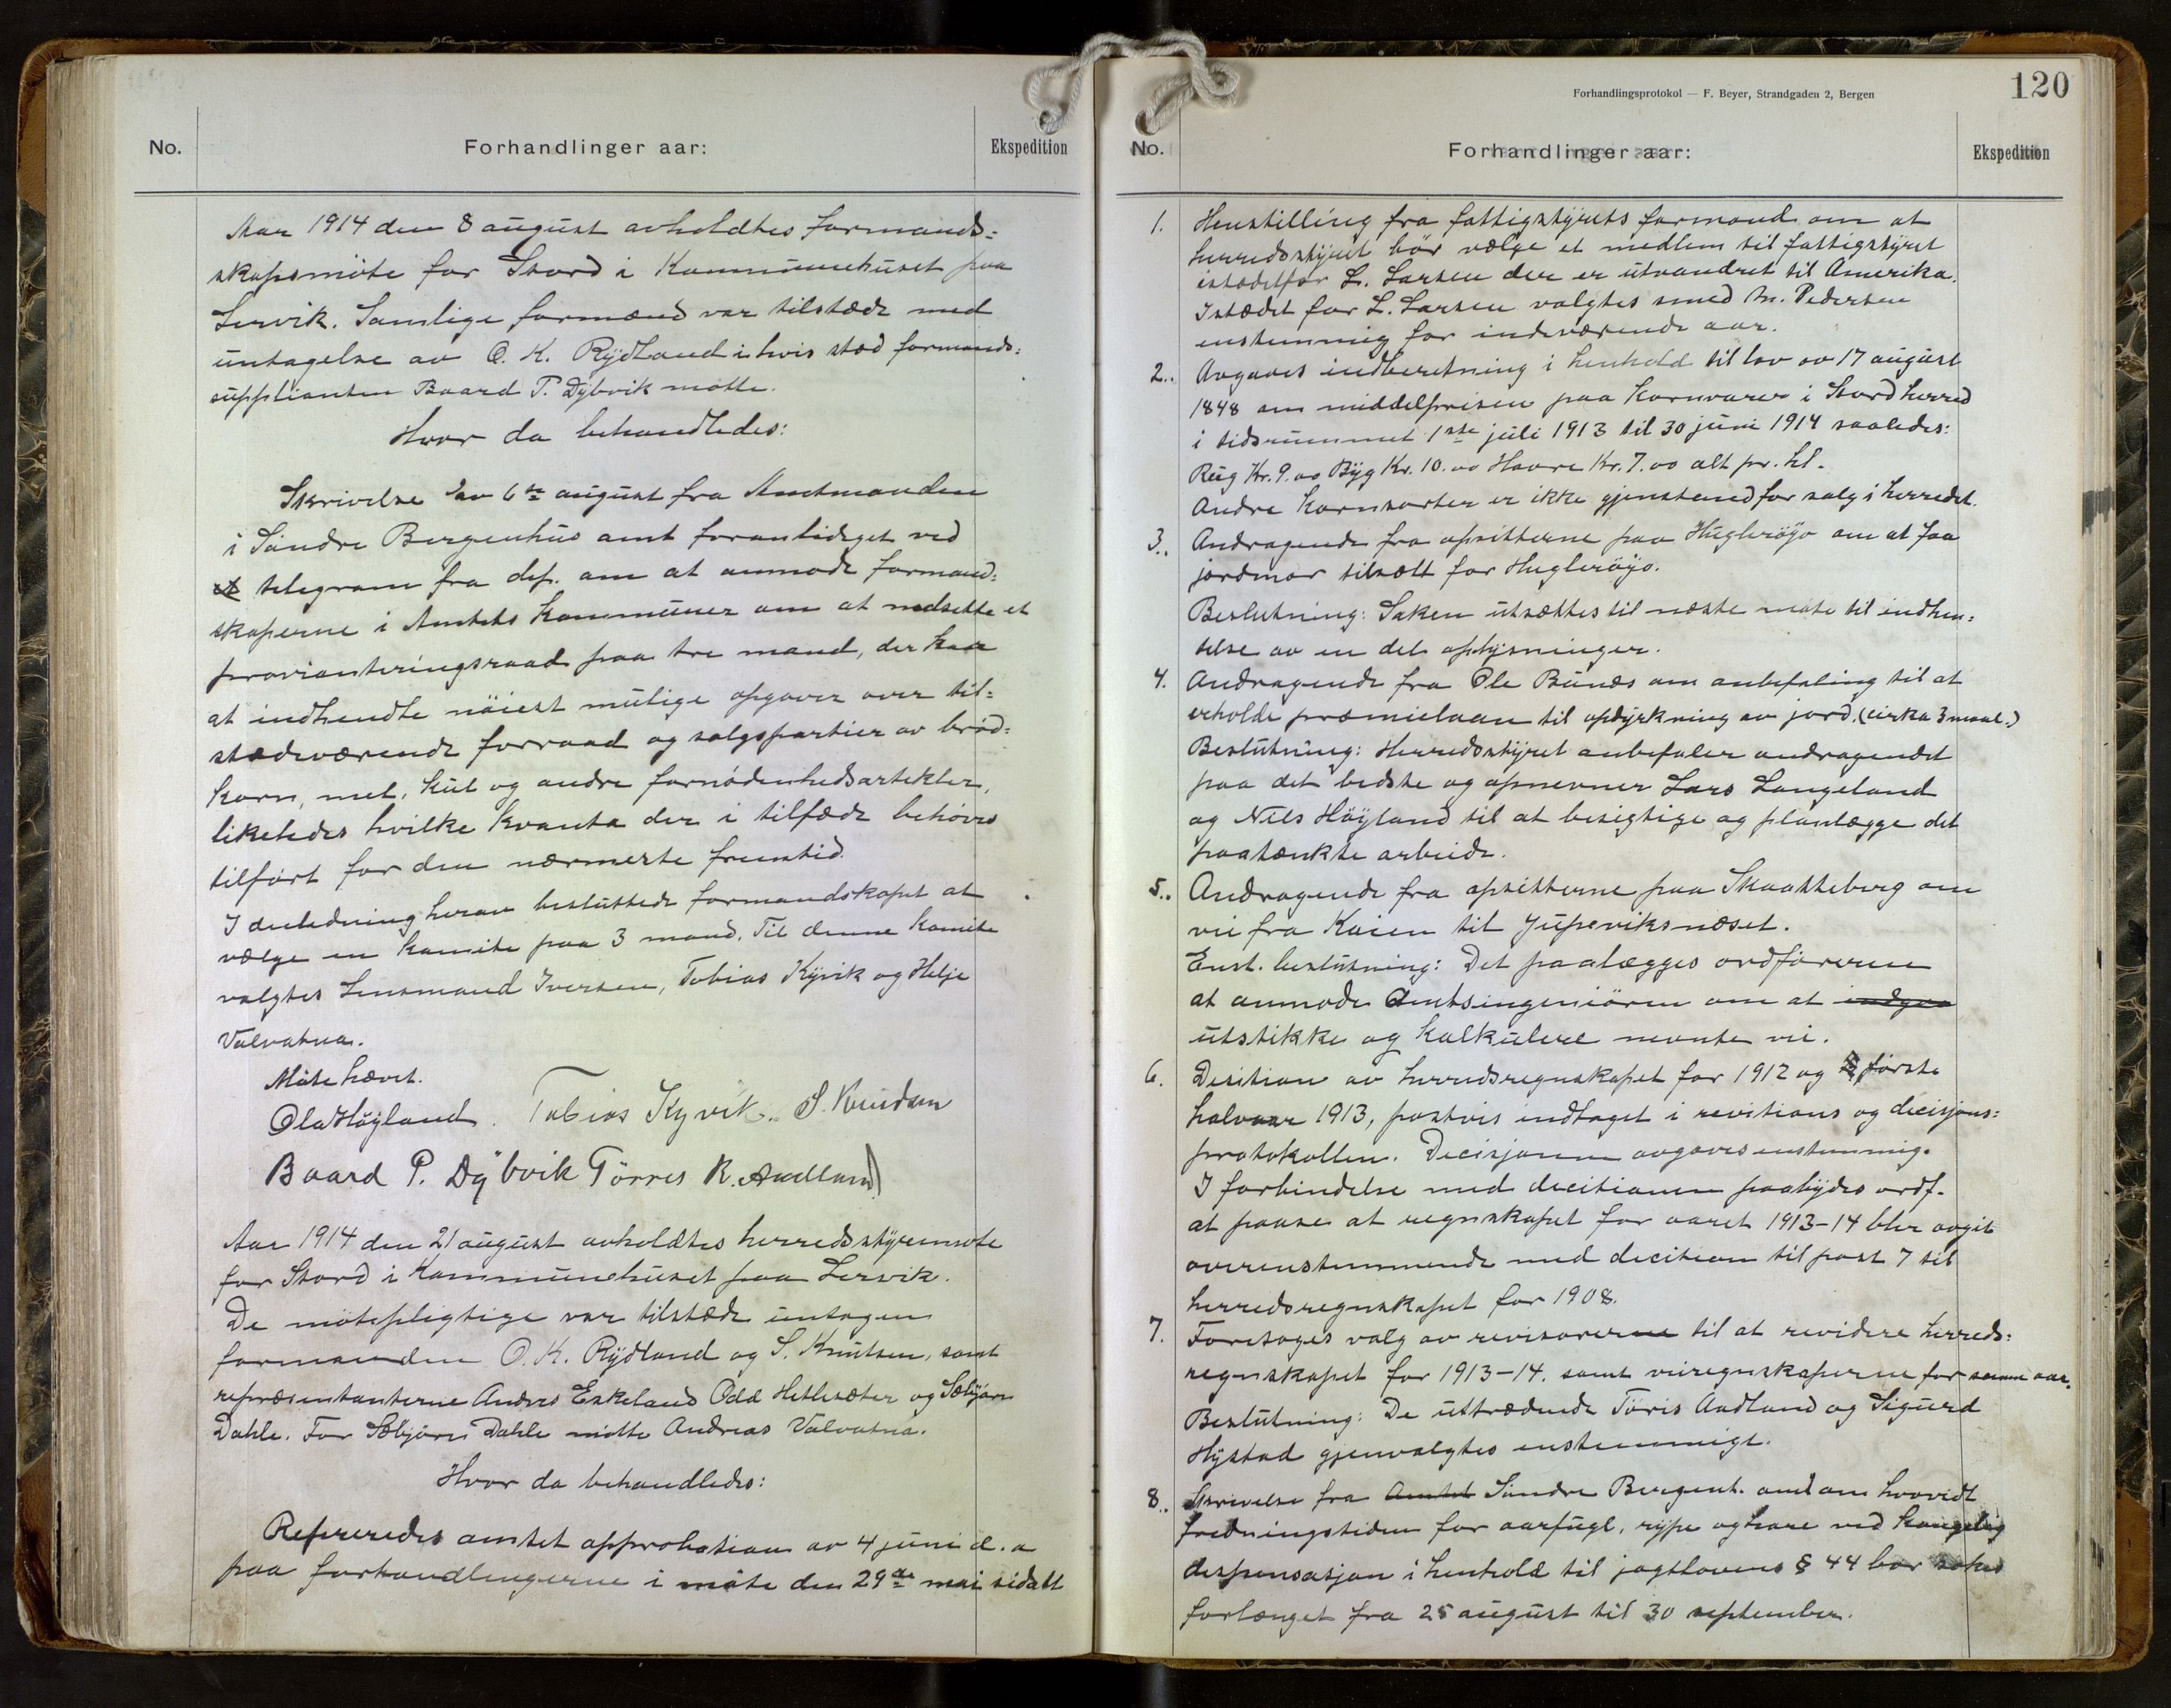 No.
Forhandlinger aar:
Ekspedition
Aar 1914 den 8 august avholdtes formand-
skapsmöte for Stord i Kommunehuset paa
Lervik. Samlige formænd var tilstæde med
untagelse av O. K. Rydland i hvis sted formands-
supplianten Baard P. Dybvik mötte.
Hvor da behandledes:
Skrivelse av 6te august fra Amtmanden
i Söndre Bergenhus amt foranlediget ved
telegram fra dep. om at anmode formand-
skaperne i Amtets Kommuner om at nedsette et
provianteringsraad paa tre mand, der har
at indhendte nöiest mulige opgaver over til-
stædeværende forraad og salgspartier av bröd-
korn, mel, kul og andre fornödenhedsartekler,
likeledes hvilke kvanta der i tilfæde behöves
tilfört for den nærmeste fremtid.
I anledning herav besluttede formandskapet at
vælge en komite paa 3 mand. Til denne komite
valgtes Lensmand Iversen, Tobias Kyvik og Helje
Valvatna.
Möte hævet.
Ola Höyland. Tobias Kyvik. S. Knudsen
Baard P. Dybvik Törres K. Aadland
Aar 1914 den 21 august avholdtes herredsstyremöte
for Stord i Kommunehuset paa Lervik.
De mötepligtige var tilstæde untagen
formanden O. K. Rydland og S. Knutsen, samt
repræsentanterne Anders Eskeland Odd Hetlesæter og Sæbjörn
Dahle. For Sæbjörn Dahle mötte Andreas Valvatna.
Hvor da behandledes:
Refereredes amtet approbation av 4 juni d. a
paa forhandlingerne i möte den 29de mai sidstl
Forhandlingsprotokol — F. Beyer, Strandgaden 2, Bergen
120
No.
Forhandlinger aar:
Ekspedition
1. Henstilling fra fattigstyrets formand om at
herredsstyret bör vælge et medlem til fattigstyret
istedetfor L. Larsen der er utvandret til Amerika.
Istædet for L. Larsen valgtes smed M. Pedersen
enstemmig for indeværende aar.
2.. Avgaves indberetning i henhold til lov av 17 august
1848 om middelprisen paa Kornvarer i Stord herred
i tidsrummet 1ste juli 1913 til 30 juni 1914 saaledes:
Rug Kr. 9.00 Byg Kr. 10.00 Havre Kr. 7.00 alt pr. hl.
Andre Kornsorter er ikke gjenstand for salg i herredet.
3.. Andragende fra opsitterne paa Huglerøyo om at faa
jordmor tilsætt for Huglerøyo.
Beslutning: Saken utsættes til næste möte til indhen-
telse av en del oplysninger.
4. Andragende fra Ole Bunæs om anbefaling til at
erholde præmielaan til opdyrkning av jord. (cirka 3 maal.)
Beslutning: Herredsstyret anbefaler andragendet
paa det bedste og opnevner Lars Langeland
og Nils Höyland til at besigtige og planlægge det
paatænkte arbeide.
5.. Andragende fra opsitterne paa Skaatteberg om
vei fra Kaien til Jupeviksnæset.
Enst. beslutning: Det paalægges ordföreren
at anmode Amtsingeniören om at indgaa
utstikke og kalkulere nevnte vei.
6. Desition av herredsregnskapet for 1912 og förste
halvaar 1913, postvis indtaget i revitions og decisjons-
protokollen. Decisjonen avgaves enstemmig.
I forbindelse med decitionen paabydes ordf.
at paase at regnskapet for aaret 1913-14 blir avgit
overenstemmende med decition til post 7 til
herredsregnskapet for 1908.
7. Foretoges valg av revisorerne til at revidere herreds-
regnskapet for 1913-14. samt veiregnskaperne for samme aar.
Beslutning: De uttrædende Töris Aadland og Sigurd
Hystad gjenvalgtes enstemmigt.
8.. Skrivelse fra Amtet Söndre Bergenh. amt om hvorvidt
fredningstiden for aarfugl, rype og hare ved kongelig
dispensasjon i henhold til jagtlovens § 44 bör sökes
forlænget fra 25 august til 30 september.